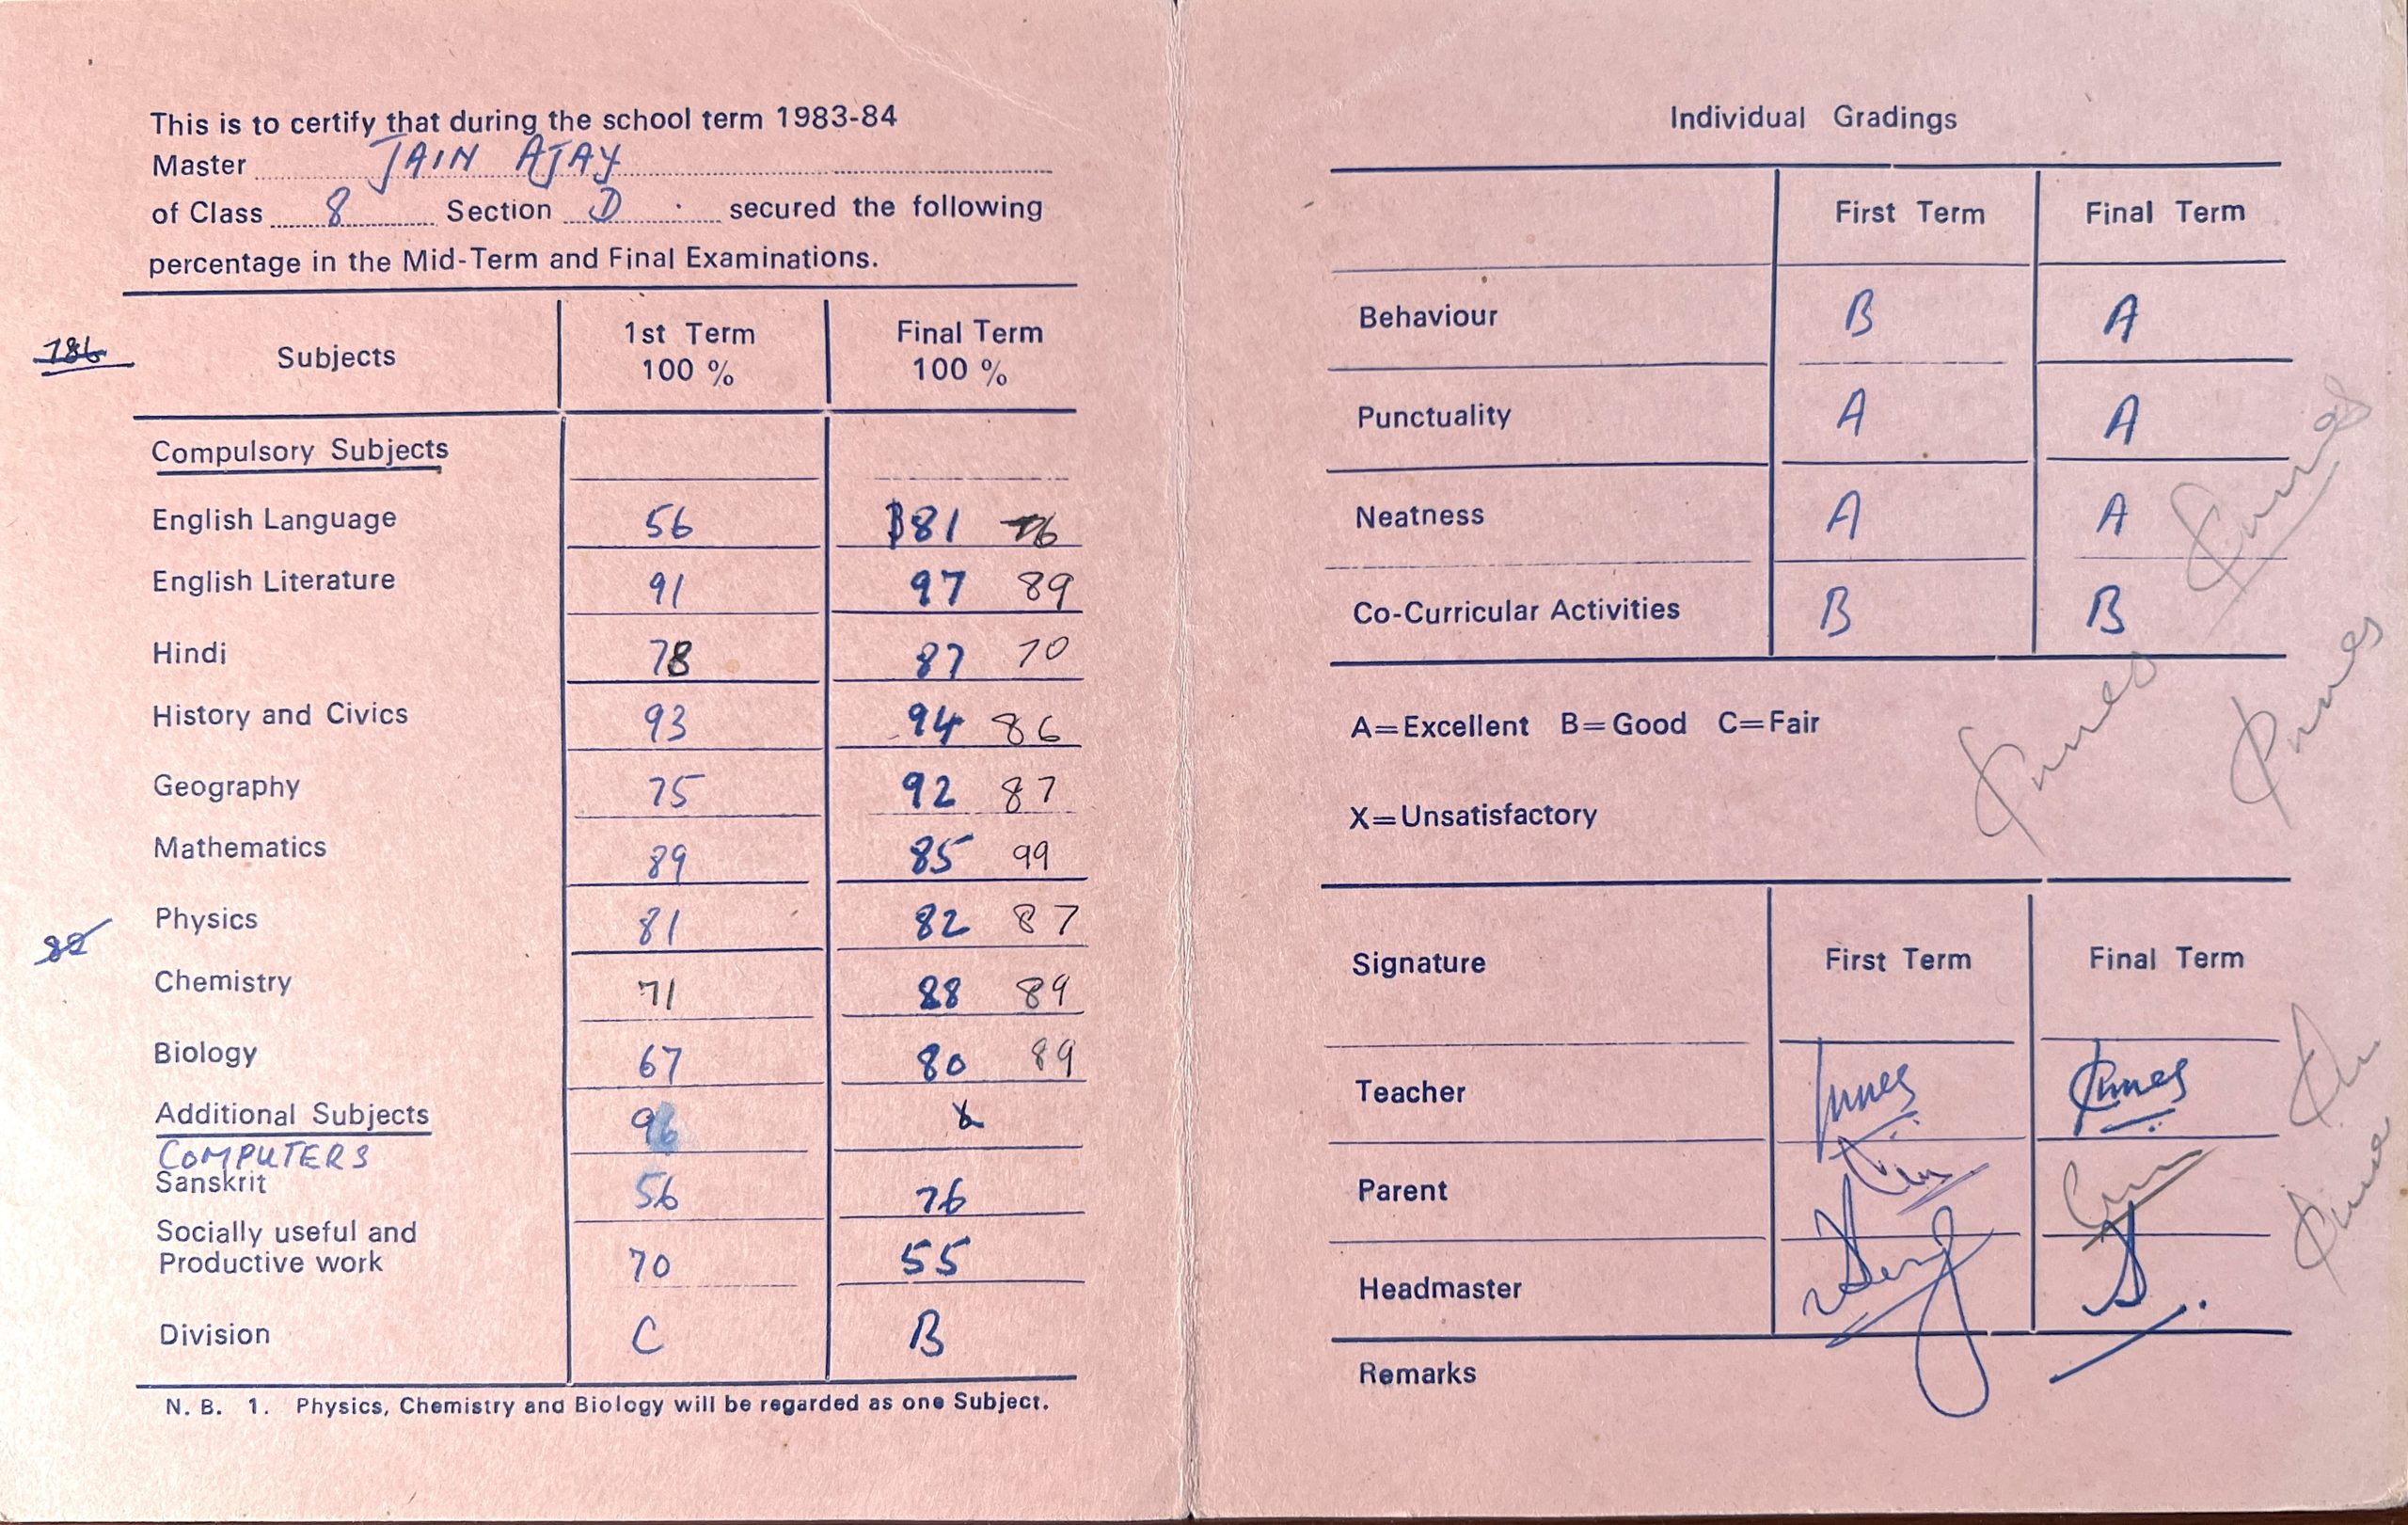 This is to certify that during the school term 1983-84
Master JAIN AJAY
of Class 8 Section D secured the following
percentage in the Mid-Term and Final Examinations.
786
Subjects 1st Term 100 % Final Term 100 %
Compulsory Subjects
English Language 56 81 76
English Literature 91 97 89
Hindi 78 87 70
History and Civics 93 94 86
Geography 75 92 87
Mathematics 89 85 99
Physics 81 82 87
82
Chemistry 71 88 89
Biology 67 80 89
Additional Subjects 96 X
COMPUTERS
Sanskrit 56 76
Socially useful and
Productive work 70 55
Division C B
N. B. 1. Physics, Chemistry and Biology will be regarded as one Subject.
Individual Gradings
First Term Final Term
Behaviour B A
Punctuality A A
Neatness A A
Co-Curricular Activities B B
A=Excellent B=Good C=Fair
X=Unsatisfactory
Signature First Term Final Term
Teacher
Parent
Headmaster
Remarks